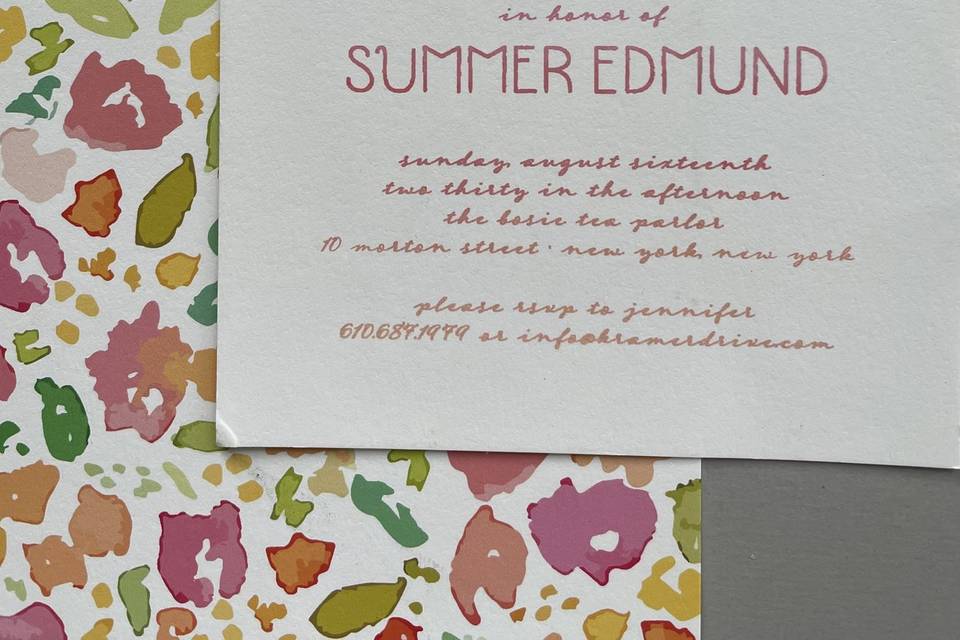 in honor of
SUMMER EDMUND
sunday, august sixteenth
two thirty in the afternoon
the bosie tea parlor
10 morton street · new york, new york
please rsvp to jennifer
610.687.1979 or info@kramerdrive.com